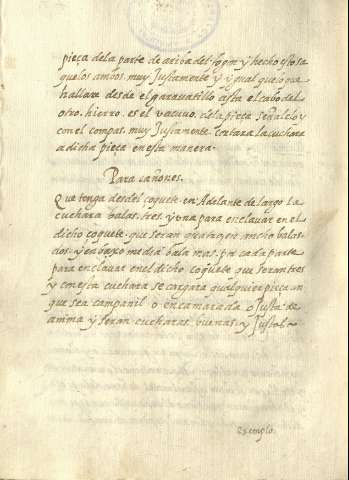 pieça de la parte de ariba del fogon y hecho esto sa
quelos ambos muy Justamente y ygual que lo que
hallare desde el garavatillo asta el cabo del
otro hierro es el vacuo de la pieça señalelo y
con el compas muy Justamente cortara la cuchara
a dicha pieça en esta manera.
Para cañones.
Que tenga desdel coquete en Adelante de largo la
cuchara balas tres y una para enclavar en el
dicho coquete que seran quatro y en ancho balas
dos y en baxo media bala mas por cada parte
para enclavar en el dicho coquete que seran tres
y con esta cuchara se cargara qualquier pieça aun
que sea campanil o encamarada o Justa de
anima y seran cucharas buenas y Justas
Exemplo.